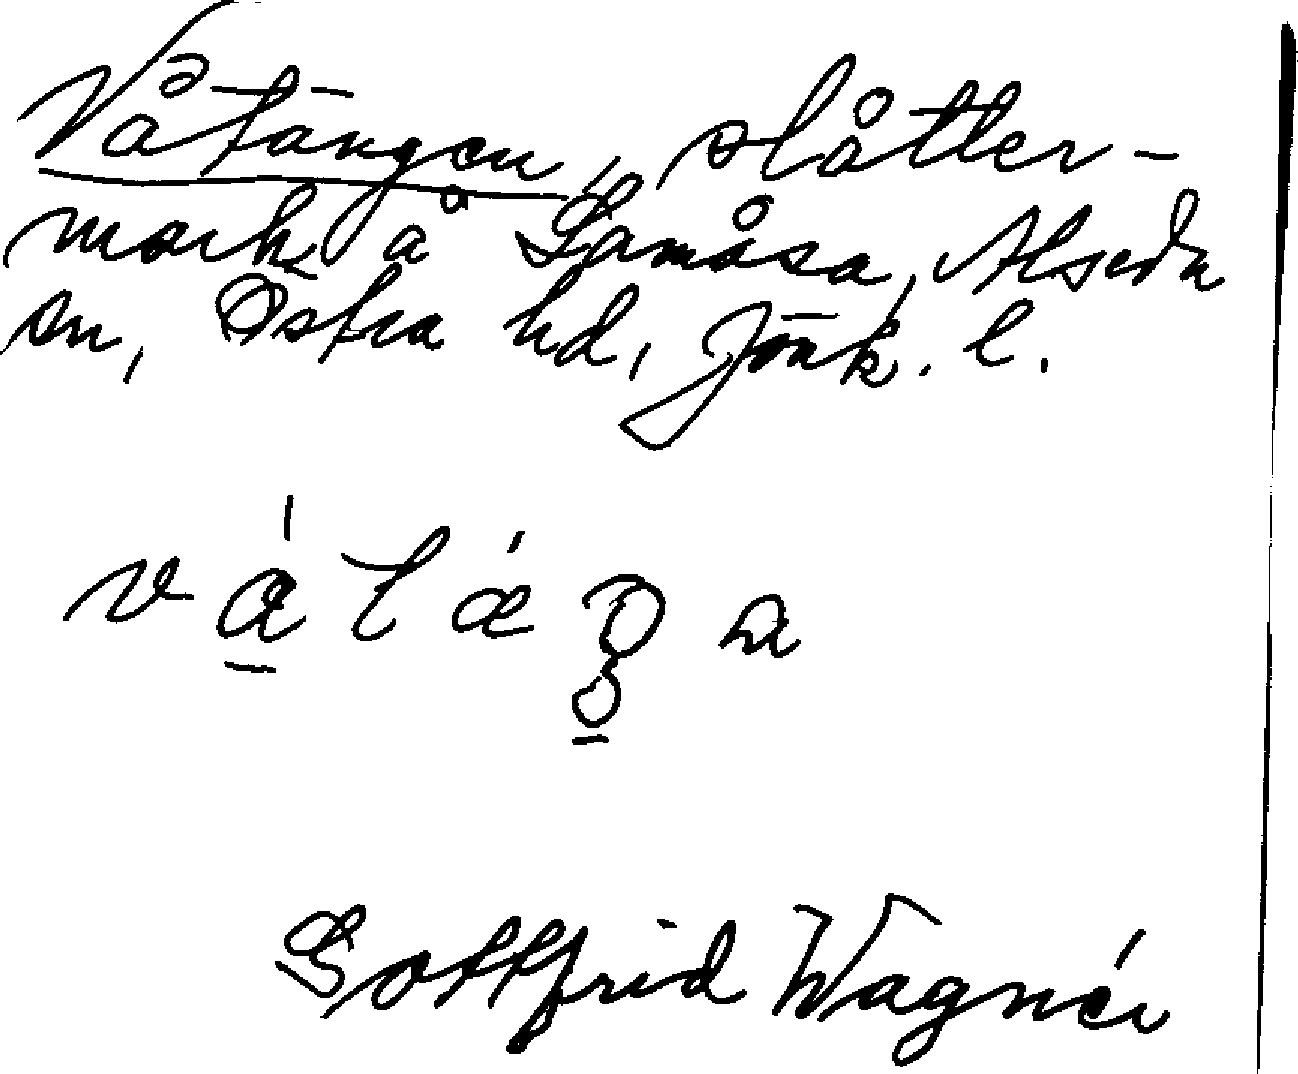 Våtängen, slåtter-
mark å Lämåsa, Alseda
sn, Östra hd, Jönk. l.
Gottfrid Wagnér